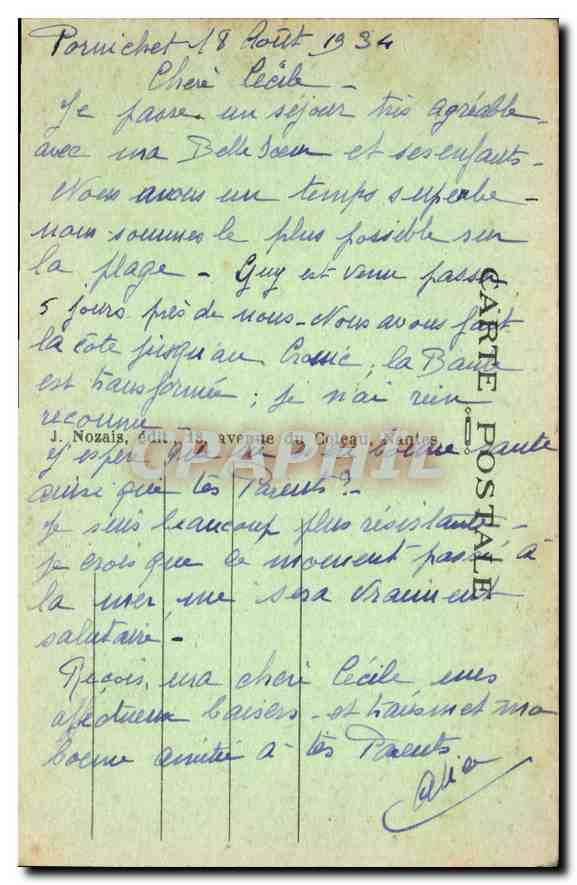 Pornichet 18 Août 1934
Chère Cécile -
Je passe un séjour très agréable
avec ma Belle Soeur et ses enfants -
Nous avons un temps superbe -
nous sommes le plus possible sur
la plage - Guy est venu passer
5 jours près de nous - Nous avons fait
la côte jusqu'au Croisic, la Baule
est transformée ; je n'ai rien
reconnu
J. Nozais, édit., 18, avenue du Coteau, Nantes
J'espère que tu es en bonne santé
ainsi que tes Parents ? -
Je suis beaucoup plus résistante -
je crois que ce moment passé à
la mer me sera vraiment
salutaire -
Reçois, ma chère Cécile mes
affectueux baisers - et transmet mon
bonne amitié à tes Parents
CARTE POSTALE
CPAPHIL